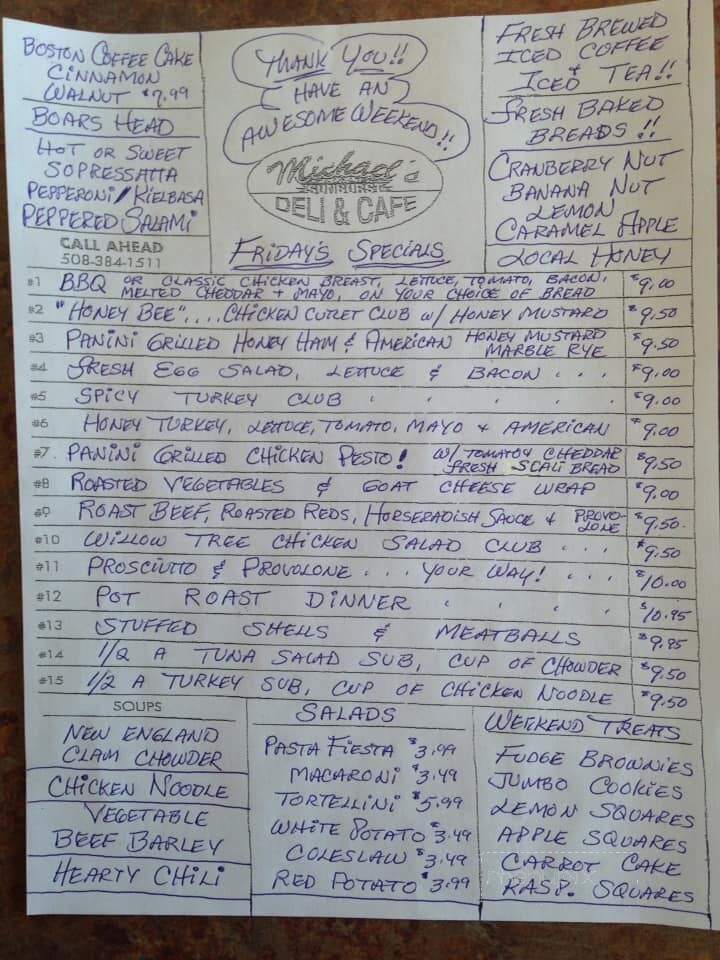 BOSTON COFFEE CAKE
CINNAMON
WALNUT $7.99
BOARS HEAD
HOT OR SWEET
SOPRESSATTA
PEPPERONI / KIELBASA
PEPPERED SALAMI
CALL AHEAD
508-384-1511
THANK YOU!!
HAVE AN
AWESOME WEEKEND!!
Michael's
DELI & CAFE
FRIDAY'S SPECIALS
FRESH BREWED
ICED COFFEE
&
ICED TEA!!
FRESH BAKED
BREADS!!
CRANBERRY NUT
BANANA NUT
LEMON
CARAMEL APPLE
LOCAL HONEY
#1 BBQ OR CLASSIC CHICKEN BREAST, LETTUCE, TOMATO, BACON, $9.00
MELTED CHEDDAR + MAYO, ON YOUR CHOICE OF BREAD
#2 "HONEY BEE".... CHICKEN CUTLET CLUB w/ HONEY MUSTARD $9.50
#3 PANINI GRILLED HONEY HAM & AMERICAN HONEY MUSTARD $9.50
MARBLE RYE
#4 FRESH EGG SALAD, LETTUCE & BACON . . . $9.00
#5 SPICY TURKEY CLUB . . . . . $9.00
#6 HONEY TURKEY, LETTUCE, TOMATO, MAYO & AMERICAN $9.00
#7 PANINI GRILLED CHICKEN PESTO! W/ TOMATO & CHEDDAR $9.50
FRESH SCALI BREAD
#8 ROASTED VEGETABLES & GOAT CHEESE WRAP $9.00
#9 ROAST BEEF, ROASTED REDS, HORSERADISH SAUCE & PROVO- $9.50
LONE
#10 WILLOW TREE CHICKEN SALAD CLUB . . . $9.50
#11 PROSCIUTTO & PROVOLONE . . . YOUR WAY! . . . $10.00
#12 POT ROAST DINNER . . . . $10.95
#13 STUFFED SHELLS & MEATBALLS $9.95
#14 1/2 A TUNA SALAD SUB, CUP OF CHOWDER $9.50
#15 1/2 A TURKEY SUB, CUP OF CHICKEN NOODLE $9.50
SOUPS
NEW ENGLAND
CLAM CHOWDER
CHICKEN NOODLE
VEGETABLE
BEEF BARLEY
HEARTY CHILI
SALADS
PASTA FIESTA $3.99
MACARONI $3.49
TORTELLINI $5.99
WHITE POTATO $3.49
COLESLAW $3.49
RED POTATO $3.99
WEEKEND TREATS
FUDGE BROWNIES
JUMBO COOKIES
LEMON SQUARES
APPLE SQUARES
CARROT CAKE
RASP. SQUARES